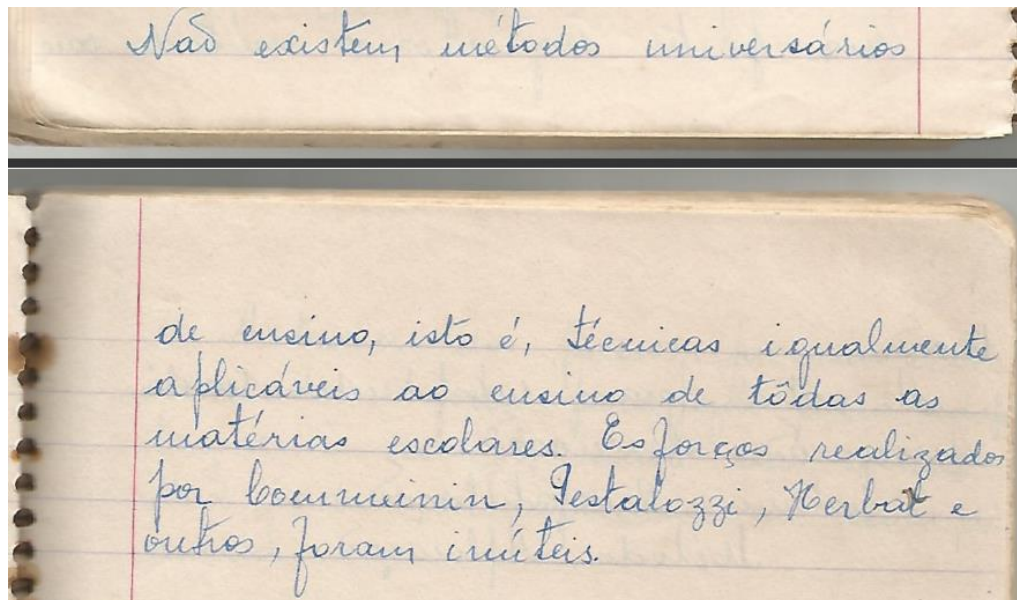 Não existem métodos universários
de ensino, isto é, técnicas igualmente
aplicáveis ao ensino de tôdas as
matérias escolares. Esforços realizados
por Coemmeinin, Pestalozzi, Herbat e
outros, foram inúteis.